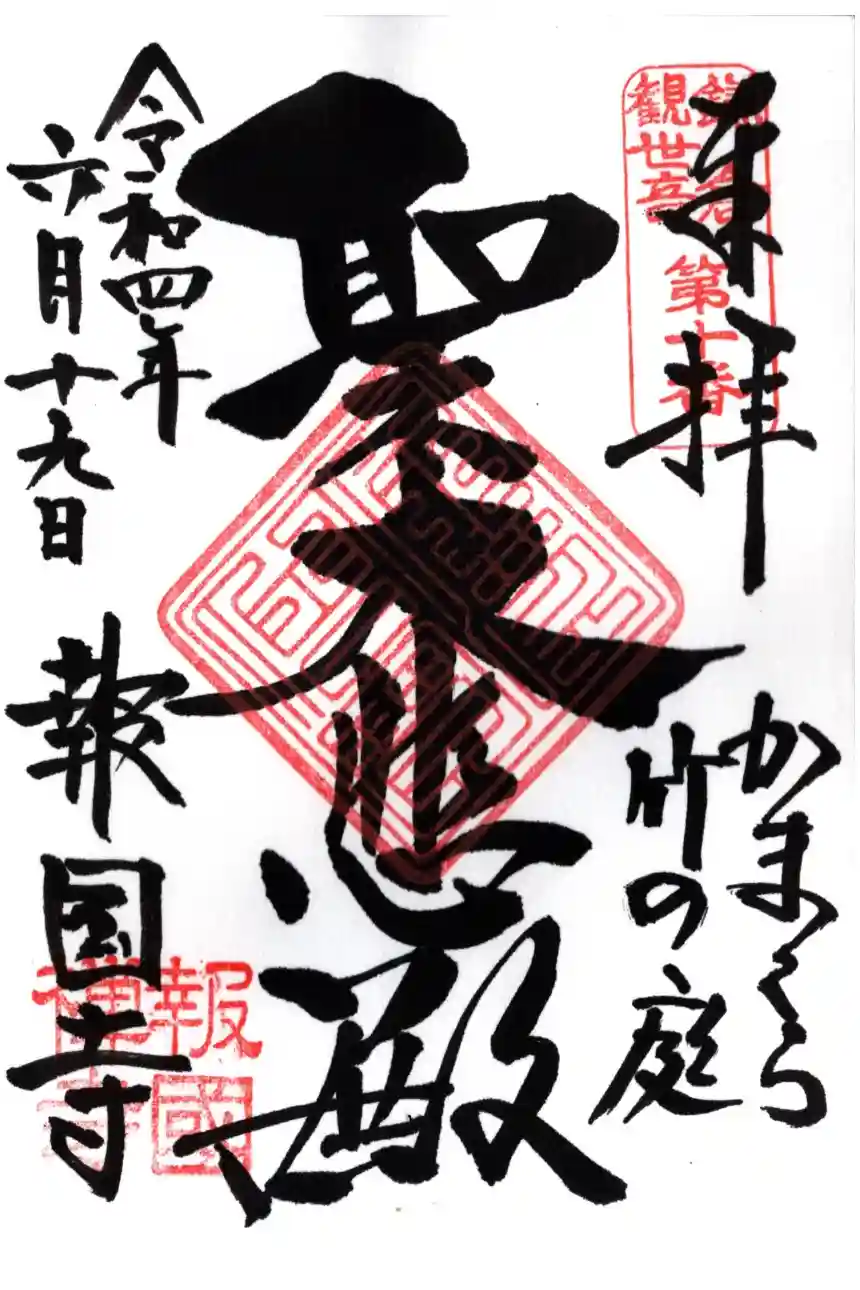 来拝
鎌倉
観世音
第十番
かまくら
竹の庭
聖大悲殿
令和四年
六月十九日
報国寺
報國
禅寺